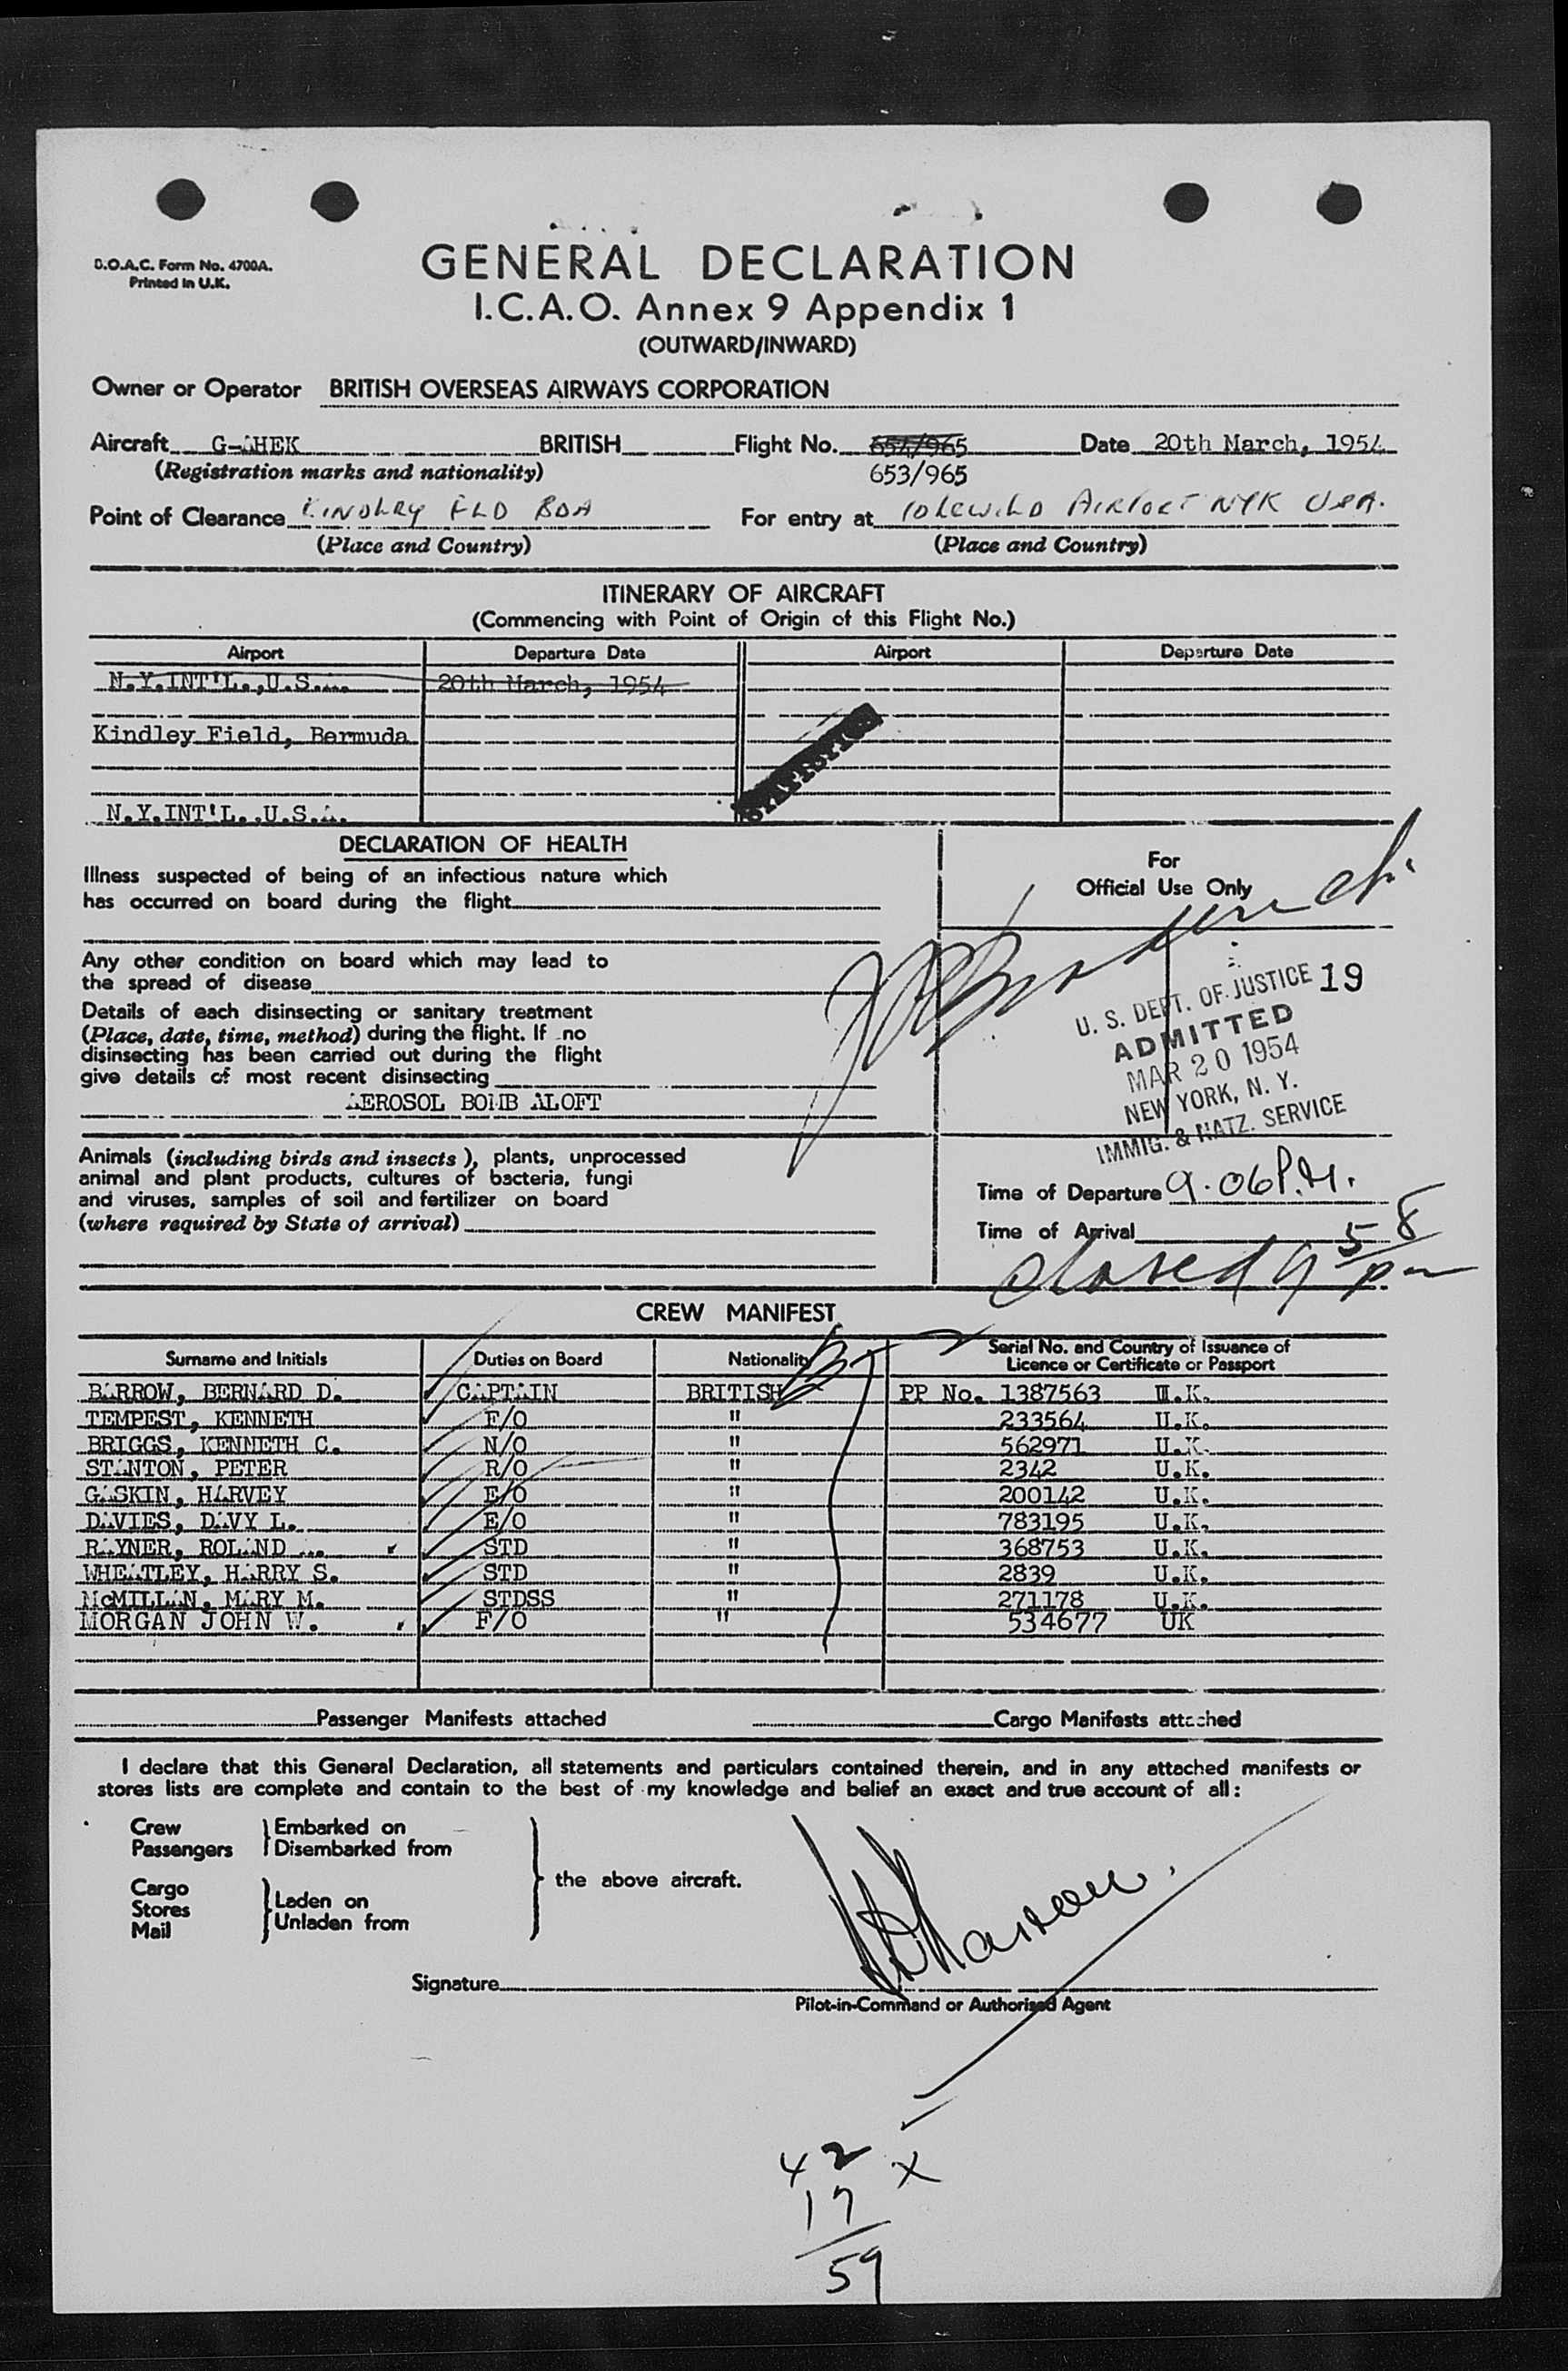 B.O.A.C. Form No. 4700A.
Printed in U.K.
GENERAL DECLARATION
I.C.A.O. Annex 9 Appendix 1
(OUTWARD/INWARD)
Owner or Operator BRITISH OVERSEAS AIRWAYS CORPORATION
Aircraft G-AHEK BRITISH Flight No. 654/965 Date 20th March, 1954
(Registration marks and nationality) 653/965
Point of Clearance KINDLEY FLD BDA For entry at IDLEWILD AIRPORT NYK USA.
(Place and Country) (Place and Country)
ITINERARY OF AIRCRAFT
(Commencing with Point of Origin of this Flight No.)
Airport Departure Date Airport Departure Date
N.Y.INT'L.,U.S.A. 20th March, 1954
Kindley Field, Bermuda
N.Y.INT'L.,U.S.A.
DECLARATION OF HEALTH
For
Official Use Only
Illness suspected of being of an infectious nature which
has occurred on board during the flight
Any other condition on board which may lead to
the spread of disease
Details of each disinsecting or sanitary treatment
(Place, date, time, method) during the flight. If no
disinsecting has been carried out during the flight
give details of most recent disinsecting
AEROSOL BOMB ALOFT
U. S. DEPT. OF JUSTICE 19
ADMITTED
MAR 20 1954
NEW YORK, N. Y.
IMMIG. & NATZ. SERVICE
Animals (including birds and insects), plants, unprocessed
animal and plant products, cultures of bacteria, fungi
and viruses, samples of soil and fertilizer on board
(where required by State of arrival)
Time of Departure 9.06 P.M.
Time of Arrival
closed 9 58 pm
CREW MANIFEST
Surname and Initials Duties on Board Nationality Serial No. and Country of Issuance of
Licence or Certificate or Passport
BARROW, BERNARD D. CAPTAIN BRITISH PP No. 1387563 U.K.
TEMPEST, KENNETH F/O " 233564 U.K.
BRIGGS, KENNETH C. N/O " 562971 U.K.
STANTON, PETER R/O " 2342 U.K.
GASKIN, HARVEY E/O " 200142 U.K.
DAVIES, DAVY L. E/O " 783195 U.K.
RAYNER, ROLAND A. STD " 368753 U.K.
WHEATLEY, HARRY S. STD " 2839 U.K.
McMILLAN, MARY M. STDSS " 271178 U.K.
MORGAN JOHN W. F/O " 534677 UK
Passenger Manifests attached Cargo Manifests attached
I declare that this General Declaration, all statements and particulars contained therein, and in any attached manifests or
stores lists are complete and contain to the best of my knowledge and belief an exact and true account of all:
Crew Embarked on
Passengers Disembarked from
the above aircraft.
Cargo Laden on
Stores
Mail Unladen from
Signature
Pilot-in-Command or Authorised Agent
42 x
17
59